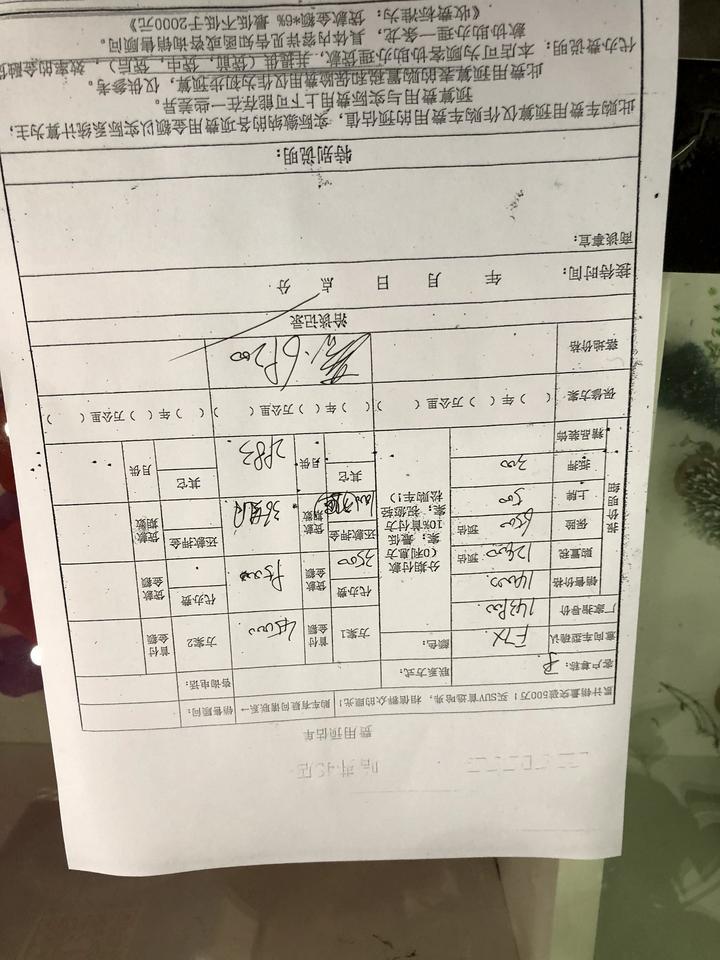 哈弗4S店
费用预估单
累计销量突破500万！买SUV首选哈弗，相信群众的眼光！ 购车有疑问请联系→ 销售顾问：
客户尊称： 联系方式： 咨询电话：
意向车型确认 F7X 颜色： 方案1 首付金额 45000 方案2 首付金额
厂家指导价 143800
销售价格 14000
分期付款（0利息方案；最低10%首付方案；祝您轻松购车！）
代办费 3500 贷款金额 代办费 贷款金额
购置税 12400 预估
保险 6500 预估 还款押金 贷款期数 36 还款押金 贷款期数
上牌 500
抵押 300 其它 月供 2883 其它 月供
精品装饰
明细报价
保修方案 （ ）年（ ）万公里 （ ）年（ ）万公里 （ ）年（ ）万公里
落地价格
洽谈记录
接待时间： 年 月 日 点 分
商谈事宜：
特别说明：
此购车费用预算仅作购车费用的预估值，实际缴纳的各项费用金额以实际系统计算为主，
预算费用与实际费用上下可能存在一些差异。
此费用预算表的购置税和保险费用仅作为初步预算，仅供参考。
代办费说明：本店可为顾客协助办理贷款，并提供（贷前，贷中，贷后），效率的金融
款协助办理一条龙，具体内容详见告知函或咨询销售顾问。
《收费标准为：贷款金额*6% 最低不低于2000元》